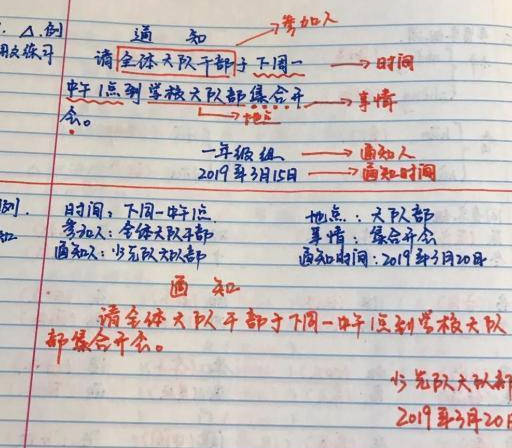 例 通 知 参加人
用文练习 请全体大队干部于下周一 时间
中午1点到学校大队部集合开 事情
会。 地点
一年级组 通知人
2019年3月15日 通知时间
例. 时间:下周一中午1点 地点:大队部
参加人:全体大队干部 事情:集合开会
通知人:少先队大队部 通知时间:2019年3月20日
通 知
请全体大队干部于下周一中午1点到学校大队
部集合开会。
少先队大队部
2019年3月20日